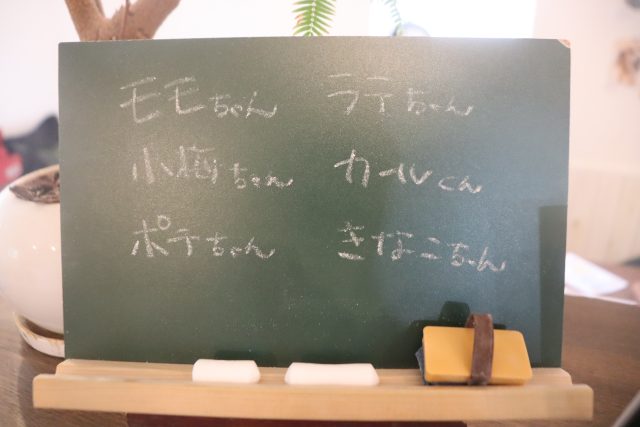 モモちゃん ラテちゃん
小梅ちゃん カールくん
ポテちゃん きなこちゃん